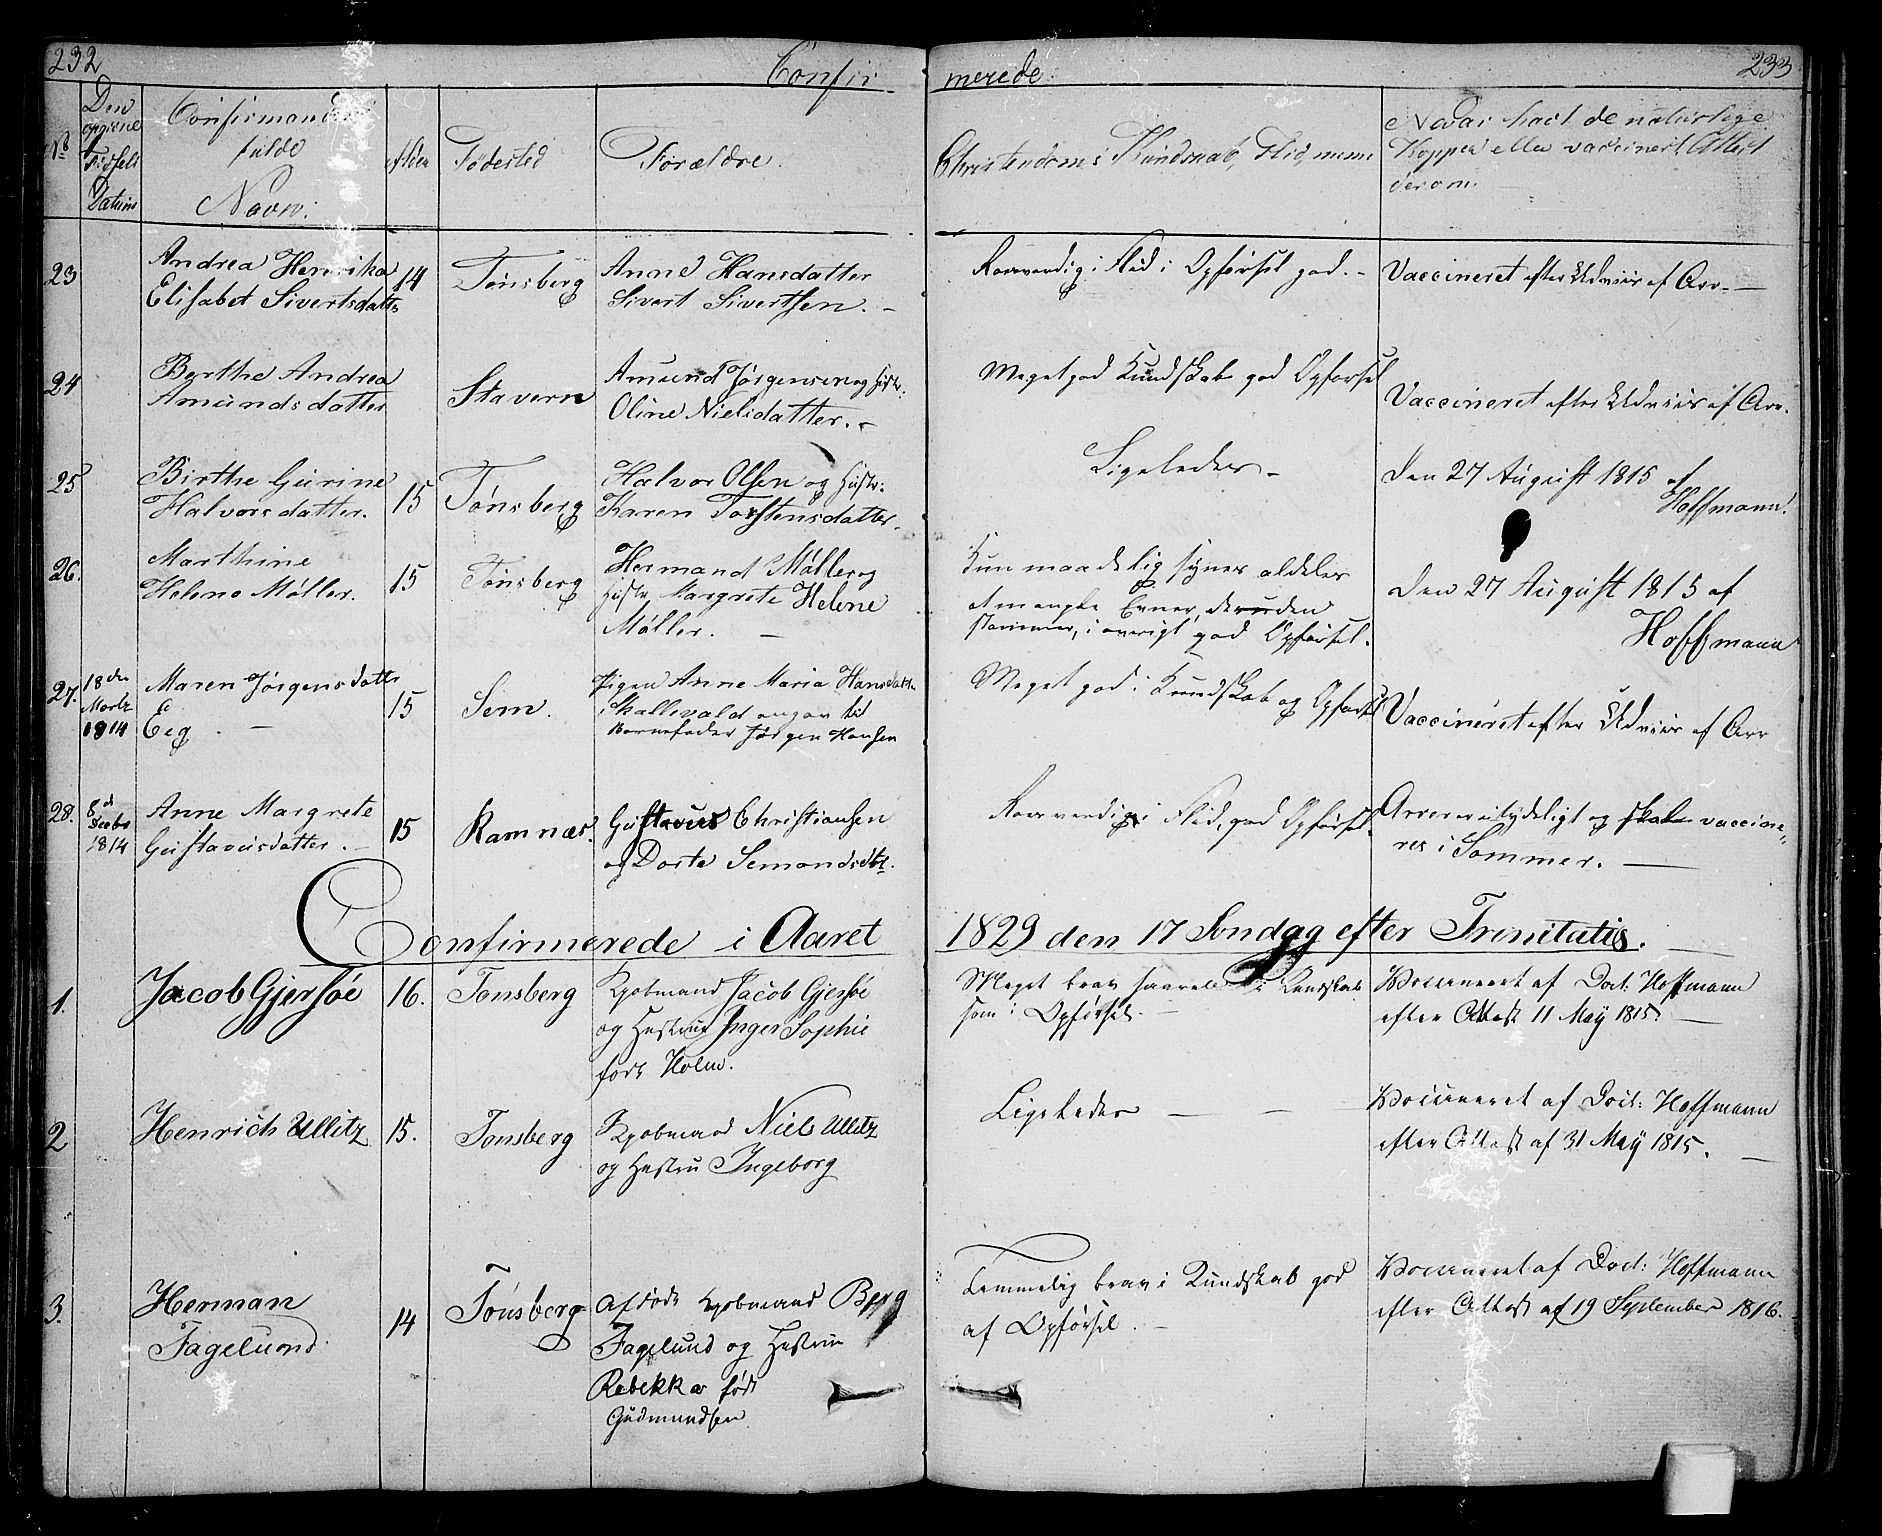 232
Confir merede
233
No
Den opgivne Fødsels Datum
Confirmandens fulde Navn:
Alder
Fødested
Forældre.
Christendoms Kundskab, Flid, nemme
Naar havt de naturlige
Kopper eller vaccinert, Attest
derom.
23
Andrea Henrika
Elisabet Sivertsdatter
14
Tønsberg
Anne Hansdatter
Sivert Sivertsen. -
Roesværdig i Flid i Opførsel god. -
Vaccineret efter Udviis af Arr. -
24
Berthe Andrea
Amundsdatter
Stavern
Amund Jørgensen og Hustr:
Oline Nielsdatter. -
Meget god Kundskab god Opførsel
Vaccineret efter Udviis af Arr.
25
Birthe Gurine
Halvorsdatter.
15
Tønsberg
Halvor Olsen og Hustr:
Karen Torstensdatter.
Ligeledes -
Den 27 August 1815 af
Hoffmann.
26.
Marthine
Helene Møller.
15
Tønsberg
Hermand Møller og
Hustr. Margrete Helene
Møller. -
Kun maadelig synes aldeles
at mangle Evner, deruden
stammer, i øvrigt god Opførsel.
Den 27 August 1815 af
Hoffmann
27.
18 den
Marts
1814
Maren Jørgensdattr
Eeg. -
15
Sem.
Pigen Anne Maria Hansdatter
i Skallevald angav til
Barnefader Jørgen Hansen
Meget god i Kundskab og Opførsel
Vaccineret efter Udviis af Arr
28.
8 d
Decbr
1814
Anne Margrete
Gustavusdatter. -
15
Ramnæs.
Gustavus Christiansen
og Dorte Semondsdtr.
Roesværdig i Flid, god Opførsel.
Arrene utydeligt og skal vaccine,,
res i Sommer. -
Confirmerede i Aaret 1829 den 17 Søndag efter Trinitatis. -
1.
Jacob Gjersøe
16.
Tønsberg
Kjøbmand Jacob Gjersøe
og Hustrue Inger Sophie
født Holm.
Meget brav saavel i Kundskab
som i Opførsel. -
Vaccineret af Doct: Hoffmann
efter Attest 11 May 1815. -
2
Henrich Ullitz
15.
Tønsberg
Kjøbmand Niels Ullitz
og Hustru Ingeborg
Ligeledes - -
Vaccineret af Doct: Hoffmann
efter Attest af 31 May 1815. -
3.
Herman
Fagelund.
14
Tønsberg
Afdøde Kjøbmand Berg
Fagelund og Hustrue
Rebekka født
Gudmundsen
Temmelig brav i Kundskab god
af Opførsel. -
Vaccineret af Doct: Hoffmann
efter Attest af 19 September 1816.